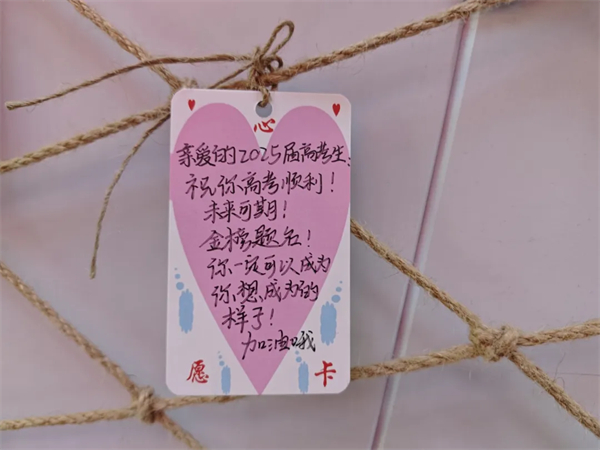 心
亲爱的2025届高考生:
祝你高考顺利!
未来可期!
金榜题名!
你一定可以成为
你想成为的
样子!
加油哦
愿 卡